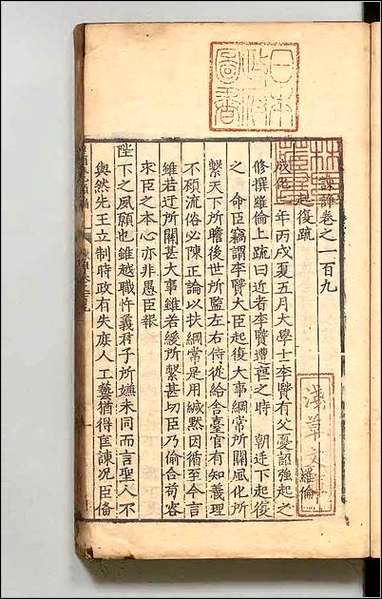 日本
政府
圖書
林氏
淺草文庫
諫諍卷之一百九
起復疏
羅倫
成化二年丙戌夏五月大學士李賢有父憂詔強起之
修撰羅倫上疏曰近者李賢遭喪之時 朝廷下起復
之 命臣竊謂李賢大臣起復大事綱常所關風化所
繫天下所瞻後世所監左右侍從給合臺官有知義理
不顧流俗必陳正論以扶綱常是用緘默因循至今言
雖若迂所關甚大事雖若緩所繫甚切臣乃偷合苟容
求臣之本心亦非愚臣報
陛下之夙願也雖越職忤義君子所嫌未同而言聖人不
與然先王立制時政有失庶人工藝猶得匡諫况臣俻